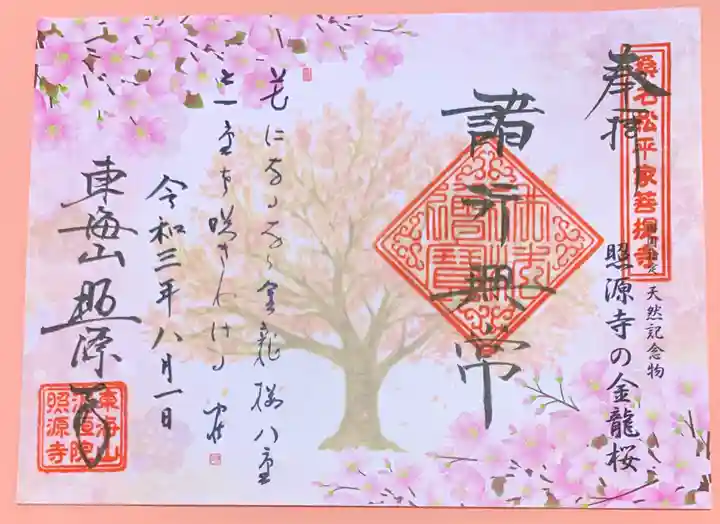 奉拝
桑名松平家菩提寺
天然記念物
照源寺の金龍桜
諸行無常
佛法僧寶
花になるなら金龍桜八重
も一重も咲きわける
令和三年八月一日
東海山照源寺
東海山
照源寺